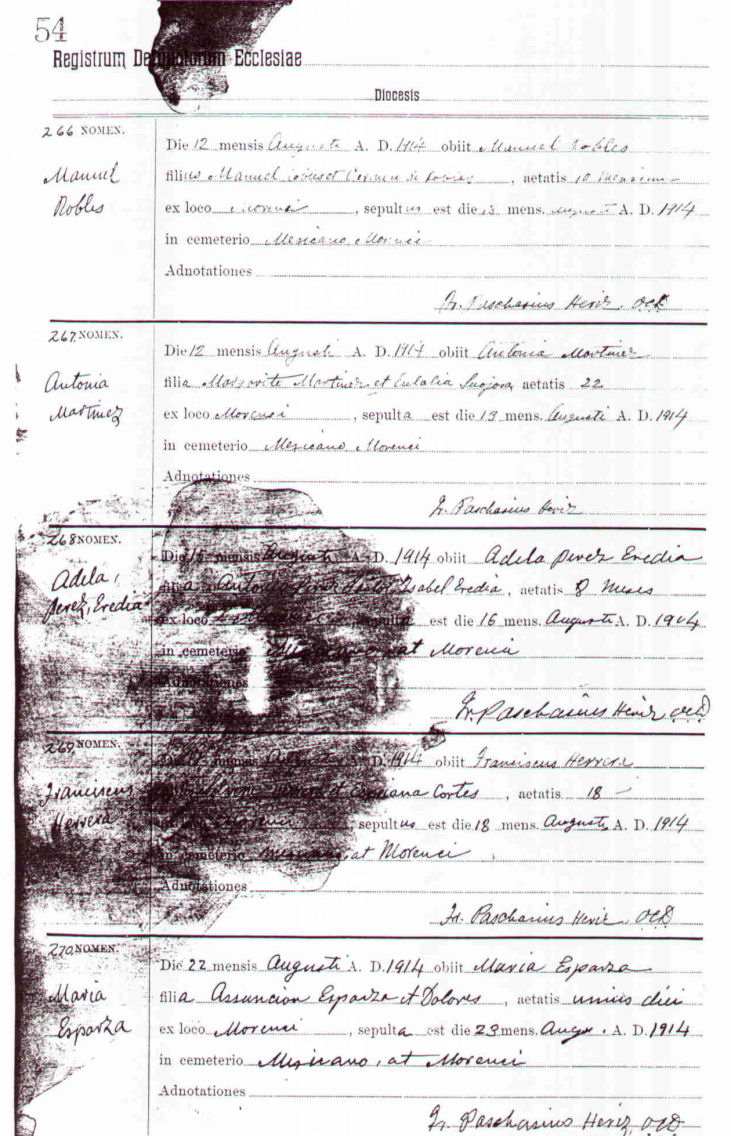 54
Registrum Defunctorum Ecclesiae
Diocesis
266 NOMEN.
Manuel
Robles
Die 12 mensis Augusti A. D. 1914 obiit Manuel Robles
filius Manuel et Carmen de Robles, aetatis 10 mensium
ex loco Morenci, sepultus est die 13 mens. Augusti A. D. 1914
in cemeterio Mexicano Morenci
Adnotationes
Fr. Paschasius Heriz. OCD
267. NOMEN.
Antonia
Martinez
Die 12 mensis Augusti A. D. 1914 obiit Antonia Martinez
filia Margarito Martinez et Eulalia, aetatis 22
ex loco Morenci, sepulta est die 13 mens. Augusti A. D. 1914
in cemeterio Mexicano, Morenci
Adnotationes
Fr. Paschasius Heriz
268 NOMEN.
Adela,
perez, Eredia
Die 15 mensis Augusti A. D. 1914 obiit Adela perez Eredia
filia Antonio Perez Isabel Eredia, aetatis 8 Meses
ex loco, sepulta est die 16 mens. Augusti A. D. 1904
in cemeterio Mexicano at Morenci
Adnotationes
Fr. Paschasius Heriz OCD
269 NOMEN.
Franciscus
Herrera
Die mensis Augusti A. D. 1914 obiit Franciscus Herrera
Herrera et Cipriana Cortes, aetatis 18
ex loco Morenci, sepultus est die 18 mens. Augusti A. D. 1914
in cemeterio Mexicano, at Morenci
Adnotationes
Fr. Paschasius Heriz. OCD
270 NOMEN.
Maria
Esparza
Die 22 mensis Augusti A. D. 1914 obiit Maria Esparza
filia Assuncion Esparza et Dolores, aetatis unius diei
ex loco Morenci, sepulta est die 23 mens. Augu. A. D. 1914
in cemeterio Mexicano, at Morenci
Adnotationes
Fr. Paschasius Heriz, OCD